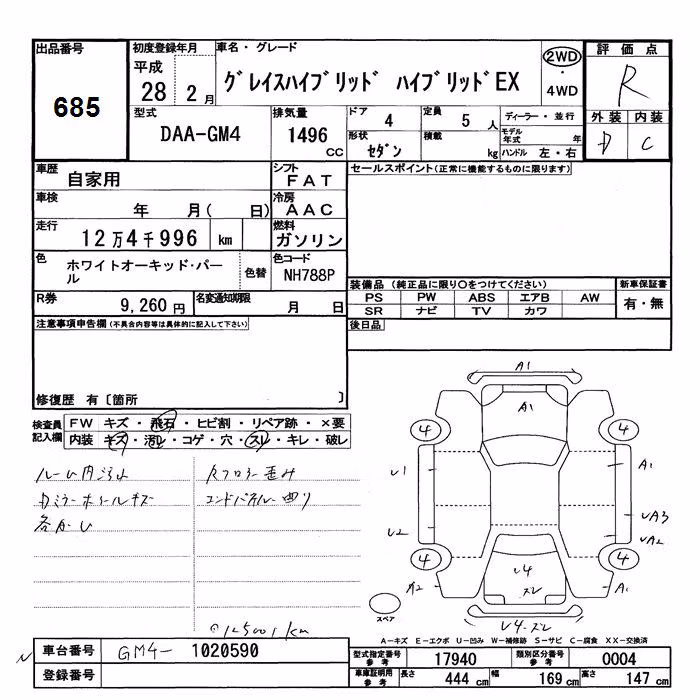 出品番号
685
初度登録年月
平成
28 2 月
車名・グレード
グレイスハイブリッド ハイブリッドEX
2WD
・
4WD
評価点
R
外装 内装
D C
型式
DAA-GM4
排気量
1496
CC
ドア
4
定員
5 人
形状
セダン
積載
kg
ディーラー・並行
モデル年式 年
ハンドル 左・右
車歴
自家用
シフト
FAT
車検
年 月( 日)
冷房
AAC
走行
12万4千996 km
燃料
ガソリン
色
ホワイトオーキッド・パール
色替
色コード
NH788P
R券
9,260 円
名変通知期限
月 日
セールスポイント(正常に機能するものに限ります)
装備品 (純正品に限り○をつけてください)
PS PW ABS エアB AW
SR ナビ TV カワ
新車保証書
有・無
後日品
注意事項申告欄 (不具合内容等は具体的に記入して下さい)
修復歴 有〔箇所 〕
検査員記入欄
FW キズ・飛石・ヒビ割・リペア跡・×要
内装 キズ・汚レ・コゲ・穴・スレ・キレ・破レ
ルーム内汚れ
Rフロアー歪み
エンドパネルー曲り
A1
A1
4 4
U1 A1
UA3
U2 UA2
4 4
U4
スレ
A2 A1
U4・スレ
スペア
A-キズ E-エクボ U-凹み W-補修跡 S-サビ C-腐食 XX-交換済
車台番号
GM4- 1020590
登録番号
型式指定番号
参考
17940
類別区分番号
参考
0004
車庫証明用
参考
長さ
444 cm
幅
169 cm
高さ
147 cm